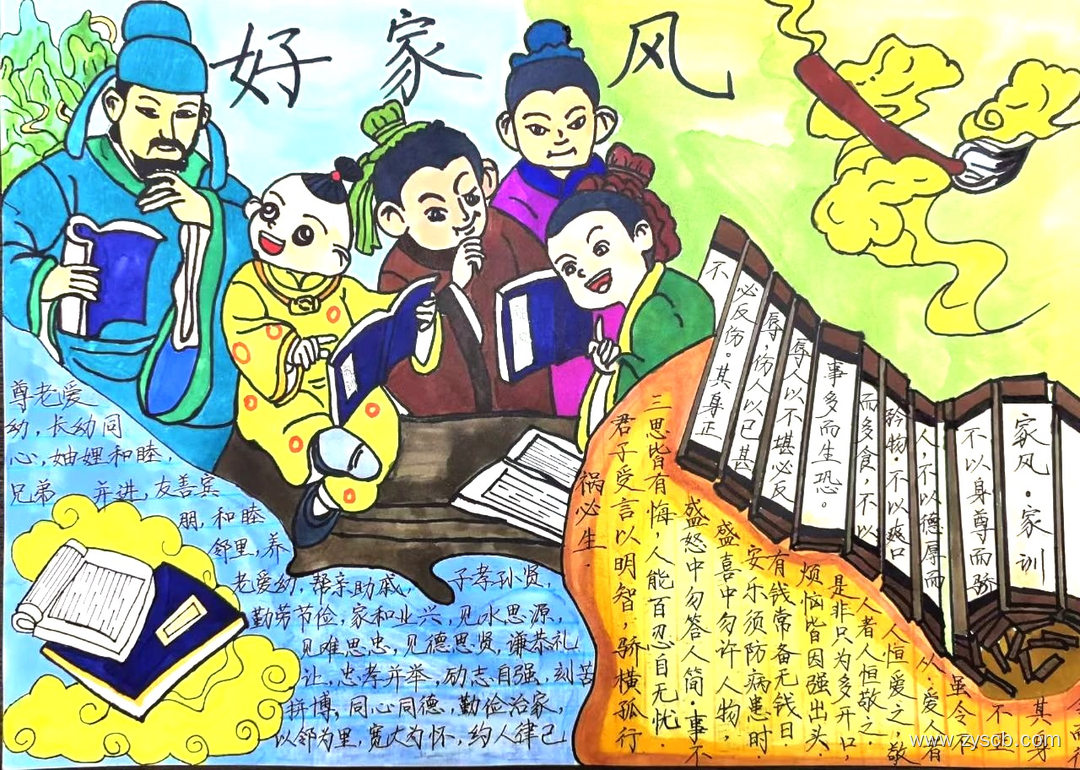 好家风
尊老爱
幼，长幼同
心，妯娌和睦，
兄弟 并进，友善宾
朋，和睦
邻里，养
老爱幼，帮亲助戚， 子孝孙贤，
勤劳节俭，家和业兴，见水思源，
见难思忠，见德思贤，谦恭礼
让，忠孝并举，励志自强，刻苦
拼博，同心同德，勤俭治家，
以邻为里，宽大为怀，约人律己
家风·家训
不以身尊而骄
人，不以德厚而
矜物。不以爽口
而多食，不以
事多而生恐。
辱人以不堪必反
辱，伤人以已甚
必反伤。其身正
不
令而行
其身
不正
虽令不
从。爱人者
人恒爱之，敬
人者人恒敬之，
是非只为多开口，
烦恼皆因强出头
有钱常备无钱日，
安乐须防病患时
盛喜中勿许人物，
盛怒中勿答人简。事不
三思皆有悔，人能百忍自无忧。
君子受言以明智，骄横孤行
祸必生。
www.zyscb.com